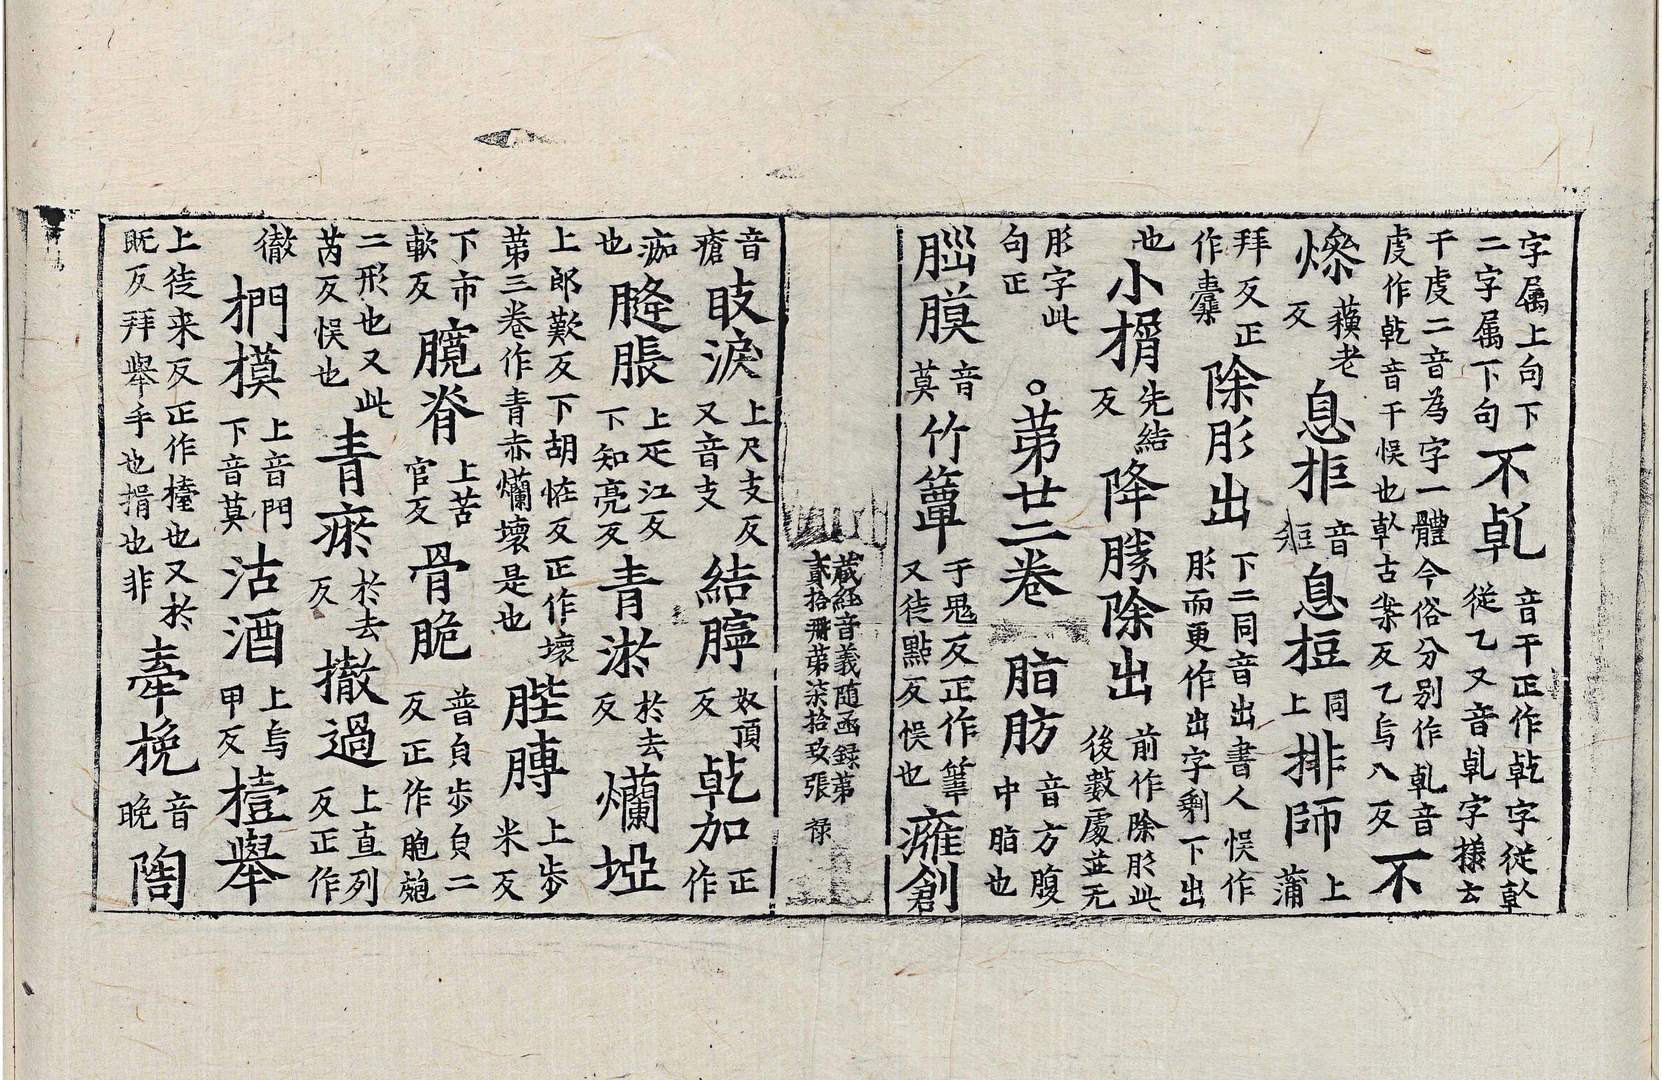 字属上句下二字属下句不乹音干正作乾字従倝従乙又音乹字樣云
干虔二音為字一體今俗分別作乹音虔作乾音干悮也倝古案反乙烏八反不
燥蘓老反息拒音矩息桓同上排師上蒲
拜反正作橐除肜出下二同音出書人悮作肜而更作出字剩下出
也小揟先結反降滕除出前作除肜此後數處並无
肜字此句正○第廿二卷脂肪音方腹中脂也
腦膜音莫竹簞子鬼反正作箄又徒點反悮也癰創
藏経音義随函録第貳拾冊第柒拾玖張禄
音瘡眵淚上尺支反又音支結聹奴頂反乾加正作
痂也膖脹上疋江反下知亮反青淤於去反爛埡
上郎歎反下胡恠反正作壞第三卷作青赤爛壞是也䏶膞上步米反
下市軟反臗脊上苦官反骨脆普皃步皃二反正作胞皰
二形也又此芮反悮也青瘀於去反撤過上直列反正作
徹捫摸上音門下音莫沽酒上烏甲反擡舉
上徒来反正作擡也又於既反拜舉手也揖也非牽挽音晚陶